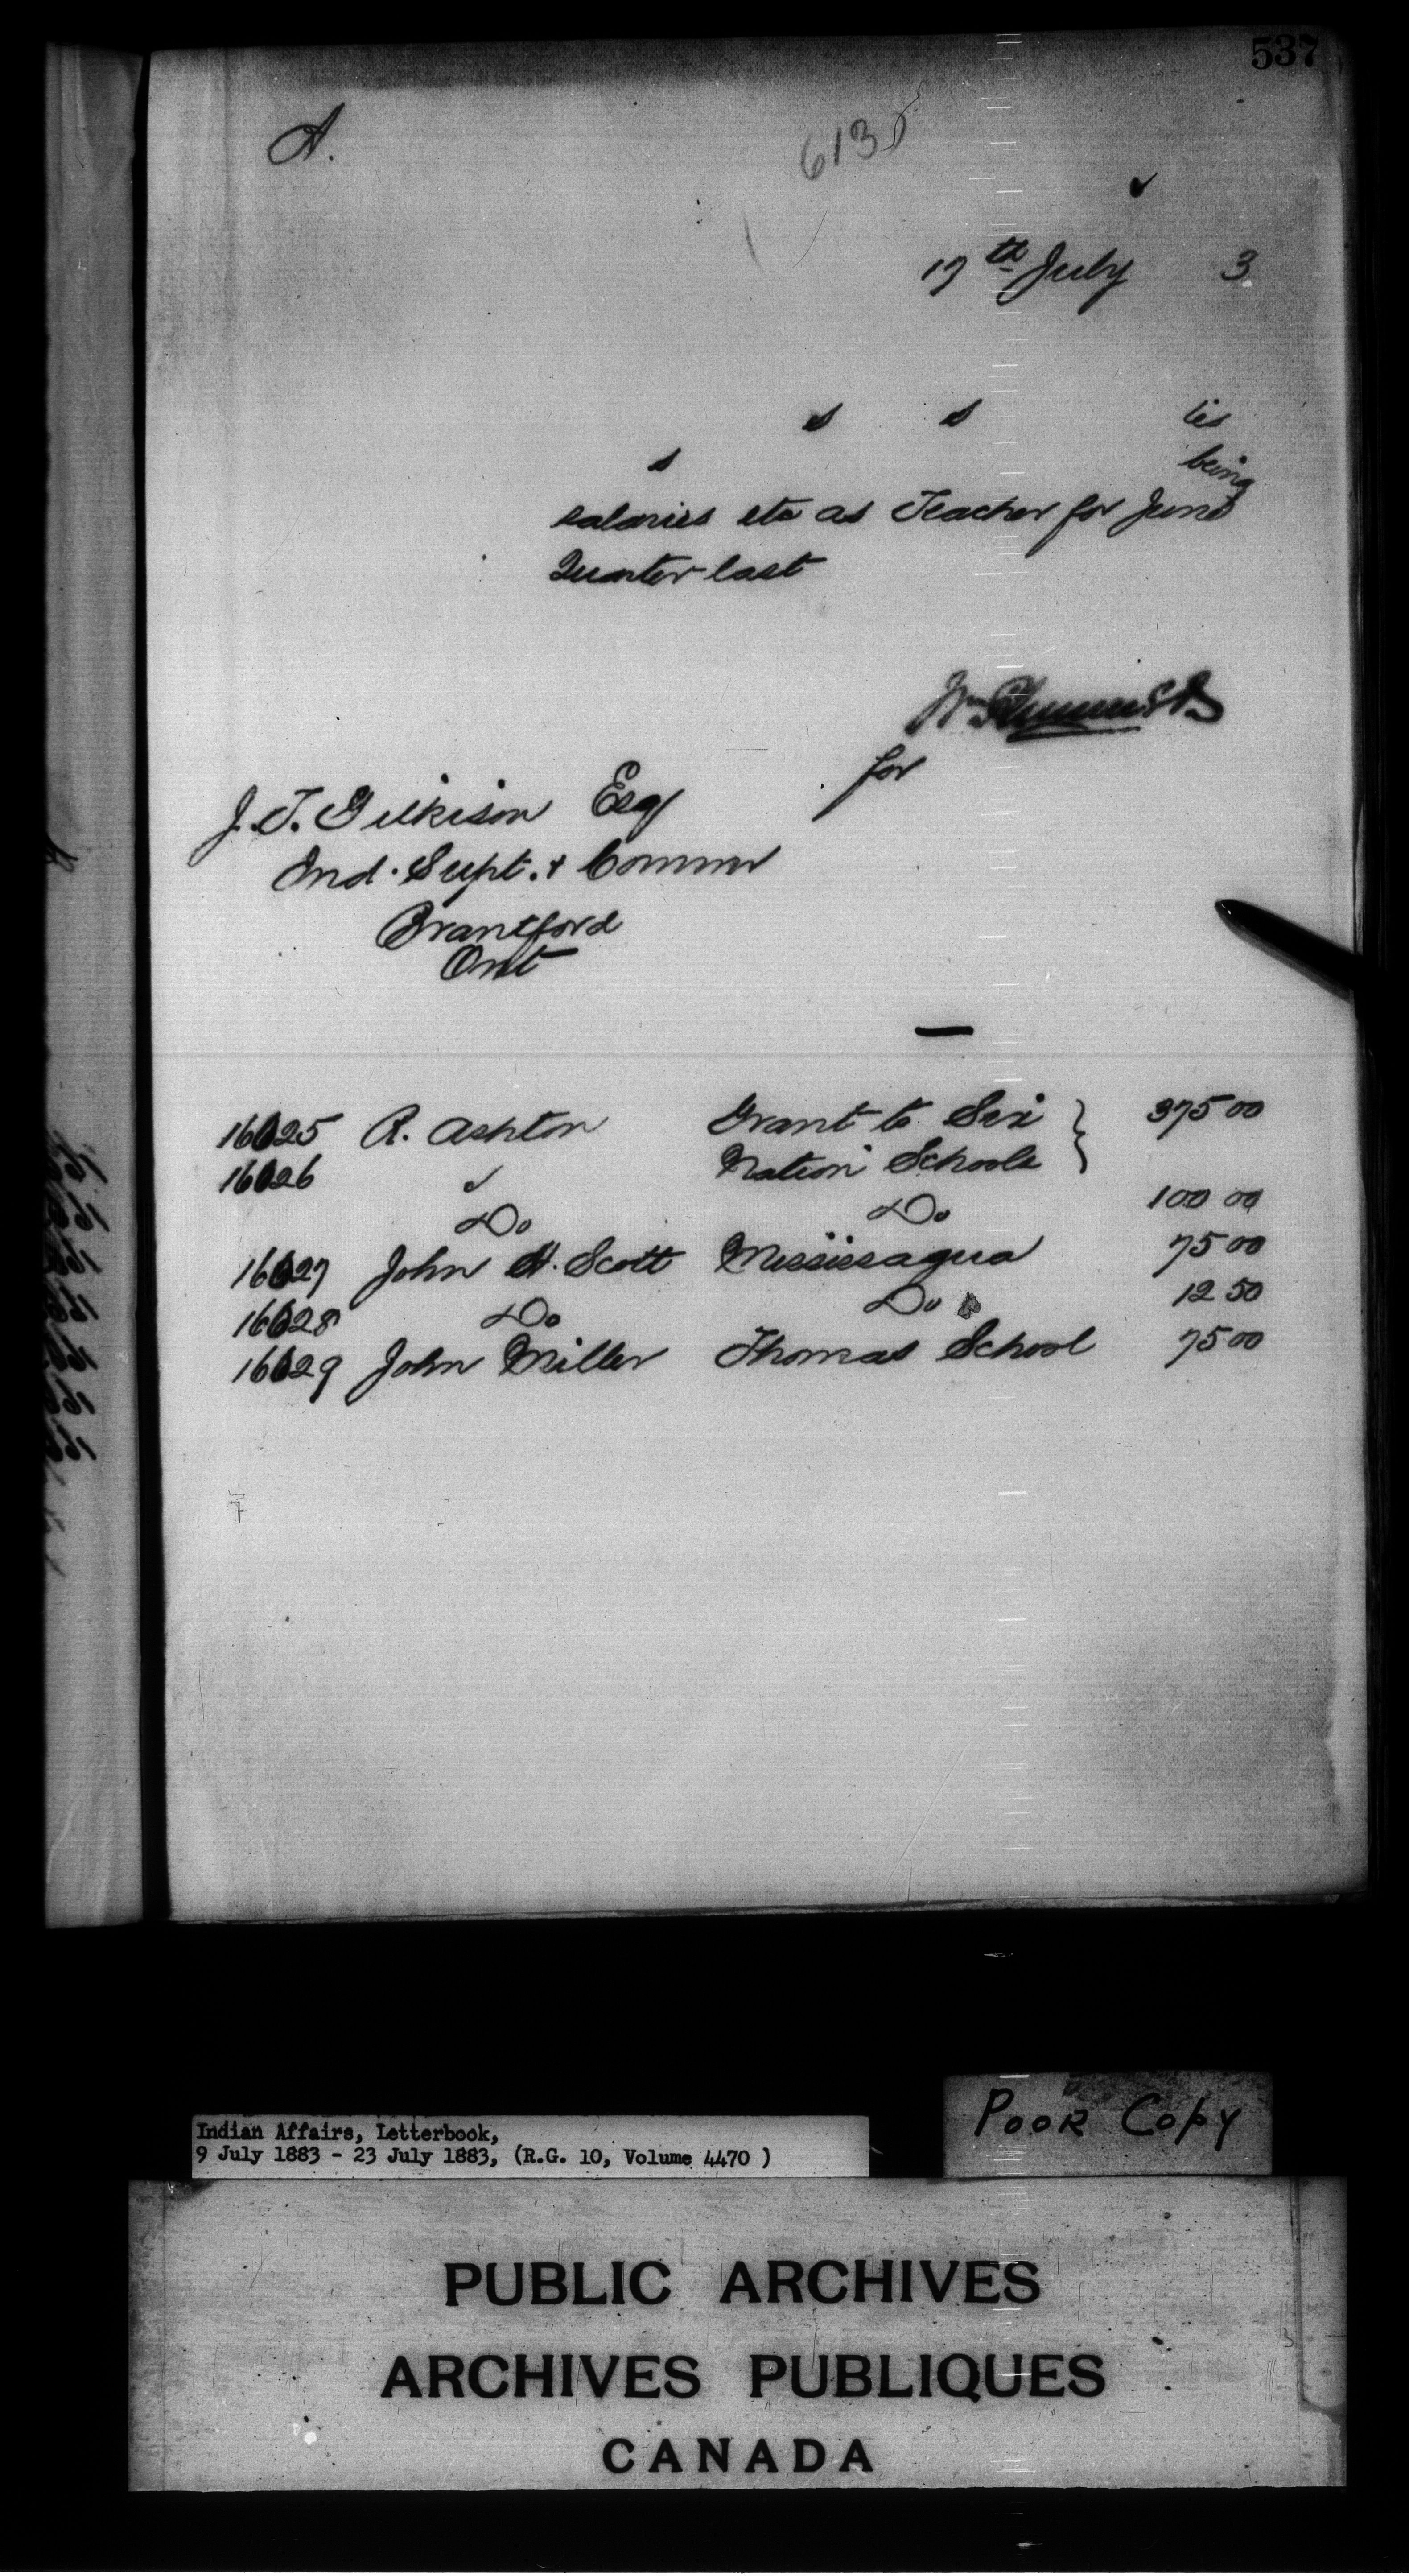 537
A.
6135
17th July 3
s s ies
s being
salaries etc as Teacher for June
Quarter last
for
J. T. Gilkison Esq
Ind. Supt. & Commr
Brantford
Ont
16625 R. Ashton Grant to Six 375 00
16626 Nation Schools
Do Do 100 00
16627 John H. Scott Mississagua 75 00
16628 Do Do 12 50
16629 John Miller Thomas School 75 00
Poor Copy
Indian Affairs, Letterbook,
9 July 1883 - 23 July 1883, (R.G. 10, Volume 4470 )
PUBLIC ARCHIVES
ARCHIVES PUBLIQUES
CANADA